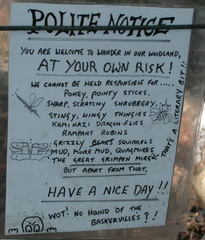 POLITE NOTICE
YOU ARE WELCOME TO WANDER IN OUR WOODLAND,
AT YOUR OWN RISK!
WE CANNOT BE HELD RESPONSIBLE FOR.....
POKEY, POINTY STICKS,
SHARP, SCRATCHY SHRUBBERY,
STINGY, WINGY THINGIES
KAMIKAZI DRAGON-FLIES
RAMPANT ROBINS
GRIZZLY BEARS SQUIRRELS
MUD, MORE MUD, QUAGMIRES,
THE GREAT GRIMPEN MIRE
BUT APART FROM THAT,
THAT'S A LITERARY BIT!!
HAVE A NICE DAY!!
WOT! NO HOUND OF THE
BASKERVILLE'S?!